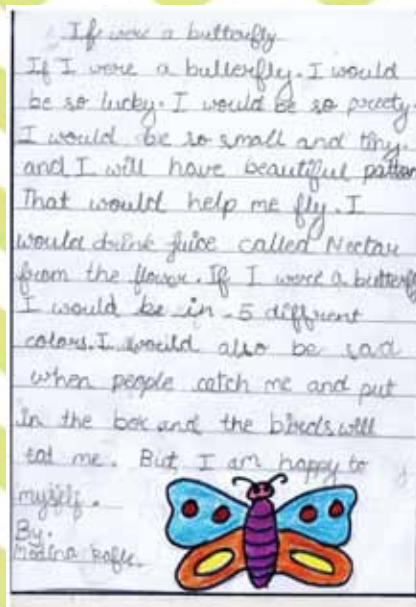 If were a butterfly
If I were a butterfly. I would
be so lucky. I would be so preety.
I would be so small and tiny.
and I will have beautiful pattern
That would help me fly. I
would drink juice called Nectar
from the flower. If I were a butterfly
I would be in 5 different
colors. I would also be sad
when people catch me and put
in the box and the birds will
eat me. But I am happy to
myself.
By.
Madina